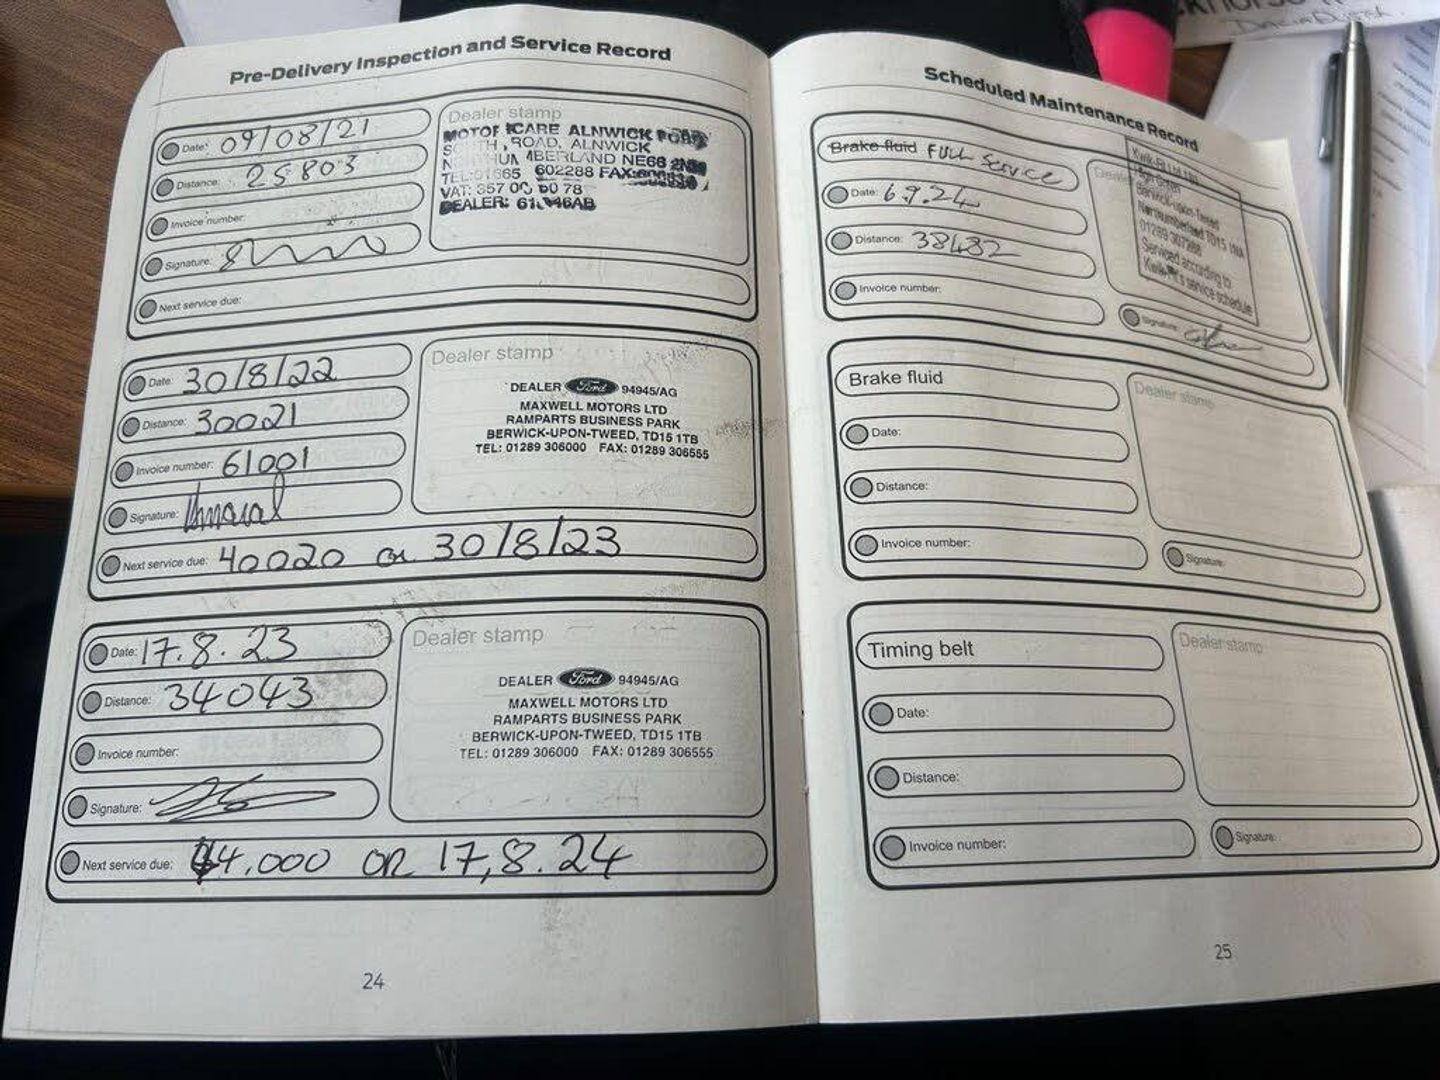 Pre-Delivery Inspection and Service Record
Date: 09/08/21
Distance: 25803
Invoice number:
Signature:
Next service due:
Dealer stamp
ALNWICK
ROAD, ALNWICK
NE66
602288 FAX:
VAT: 357
DEALER:
Date: 30/8/22
Distance: 30021
Invoice number: 61001
Signature:
Next service due: 40020 or 30/8/23
Dealer stamp
DEALER Ford 94945/AG
MAXWELL MOTORS LTD
RAMPARTS BUSINESS PARK
BERWICK-UPON-TWEED, TD15 1TB
TEL: 01289 306000 FAX: 01289 306555
Date: 17.8.23
Distance: 34043
Invoice number:
Signature:
Next service due: 44,000 OR 17,8.24
Dealer stamp
DEALER Ford 94945/AG
MAXWELL MOTORS LTD
RAMPARTS BUSINESS PARK
BERWICK-UPON-TWEED, TD15 1TB
TEL: 01289 306000 FAX: 01289 306555
24
Scheduled Maintenance Record
Brake fluid FULL Service
Date: 6.9.24
Distance: 38482
Invoice number:
Berwick-upon-Tweed
Northumberland TD15
01289
Serviced according to
Kwik-Fit's service schedule
Signature:
Brake fluid
Date:
Distance:
Invoice number:
Dealer stamp
Signature:
Timing belt
Date:
Distance:
Invoice number:
Dealer stamp
Signature:
25